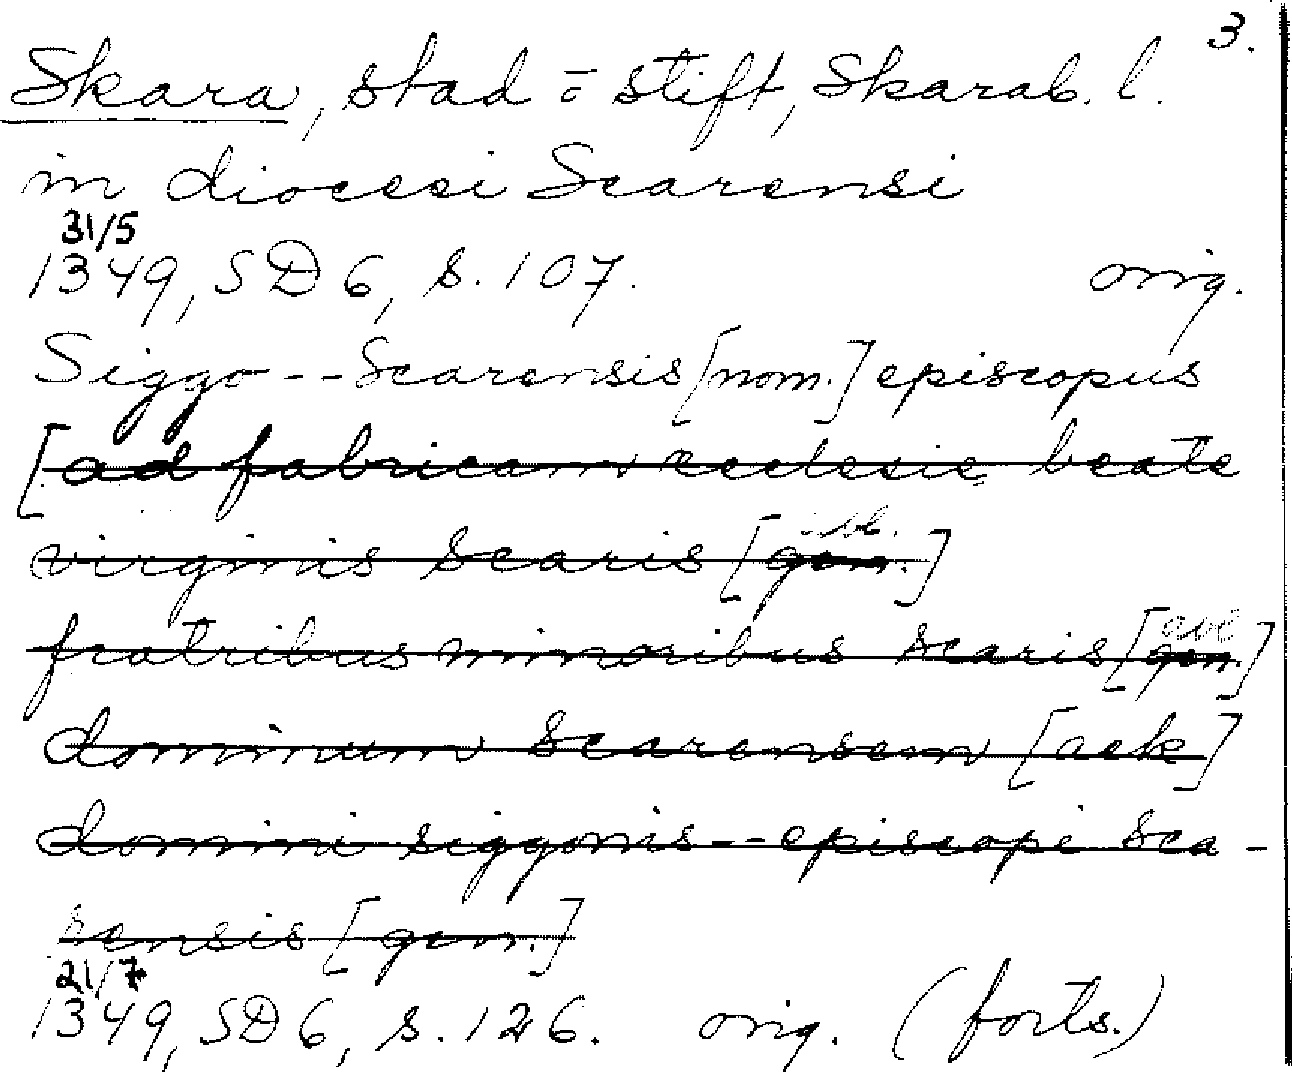 3.
Skara, stad = stift, Skarab. l.
in diocesi Scarensi
31/5
1349, SD 6, s. 107. orig.
Siggo -- Scarensis [nom.] episcopus
[ad fabricam ecclesie beate
abl.
virginis Scaris [gen.]
abl
fratribus minoribus Scaris [gen.]
dominum Scarensem [ack]
domini siggonis -- episcopi Sca-
rensis [gen.]
21/7
1349, SD 6, s. 126. orig. (forts.)